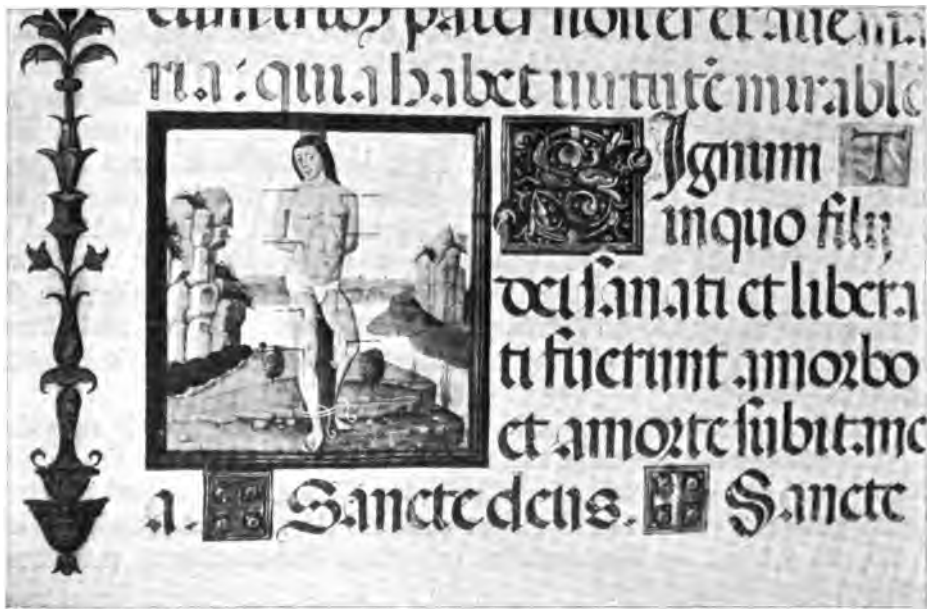 pater noster et ave ma
ria : quia habet uirtutē mirabilē
SIgnum T
in quo filij
dei sanati et libera
ti fuerunt a morbo
et a morte subitane
a. T Sancte deus. T Sancte